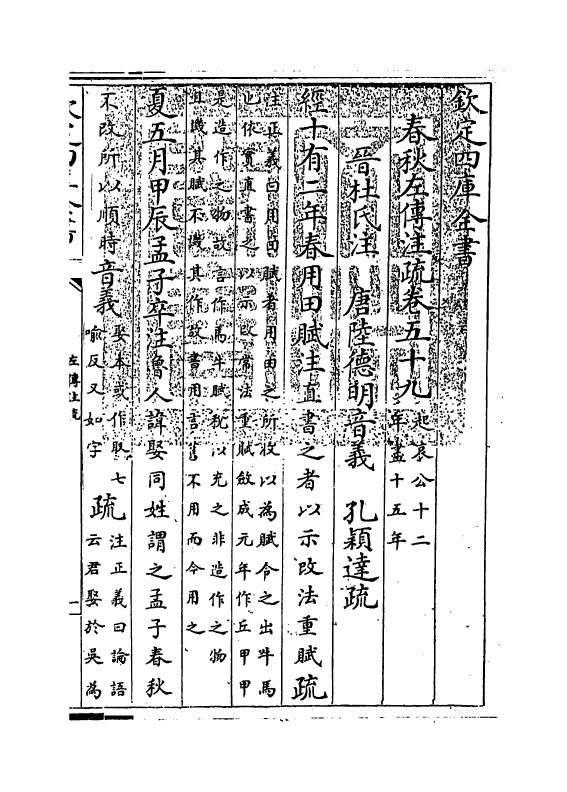 欽定四庫全書
春秋左傳注疏卷五十九起哀公十二
年盡十五年
晉杜氏注 唐陸德明音義 孔穎達疏
經十有二年春用田賦注直書之者以示改法重賦疏
注正義曰用田賦者用田之所收以為賦令之出牛馬
也依實直書之以示改常法重賦斂成元年作丘甲甲
是造作之物故言作馬牛賦税以充之非造作之物
且譏其賦不譏其作故書用言舊不用而今用之
夏五月甲辰孟子卒注魯人諱娶同姓謂之孟子春秋
不改所以順時音義娶本或作取七
喻反又如字疏注正義曰論語
云君娶於吳為
左傳注疏
一